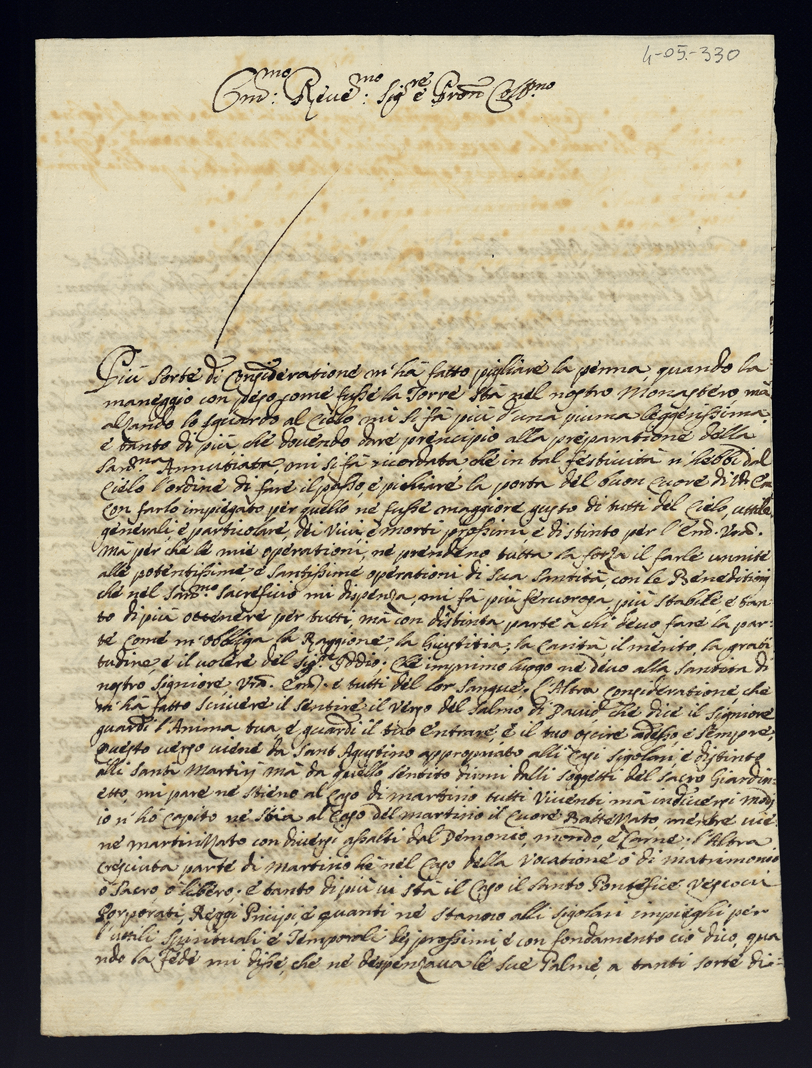 4-05-330
Em:mo Reve:mo Sigre e Pron Coll:mo
Più sorte di Consideratione m'hà fatto pigliare la penna quando la
maneggio con peso come fusse la Torre stà nel nostro Monastero, mà
alzando lo sguardo al Cielo mi si fà più d'una piuma leggerissima
e tanto di più che dovendo dare prencipio alla preparatione della
Santma Annutiata, mi si fà ricordata che in tal festività n'hebbi dal
Cielo l'ordine di fare il passo, e pichiare la porta del buon Cuore di
Con farlo impiegato per quello ne fusse maggiore gusto di tutti del Cielo, utile
generali e particolare, dei Vivi, e morti prossimi, e distinto per l'Em. Vra.
Mà per che le mie operationi, ne prendeno tutta la forza il farle unnite
alle potentissime, e santissime operationi di Sua Santità, con le Beneditioni
che nel Santmo Sacrefitio mi dispenza, mi fà più fervorosa, più stabile, e tan-
to di più ottenere per tutti, mà con distinta parte à chi devo fare la par-
te come m'obbliga la Raggione, la Giustitia, la Carità, il merito, la grati
tudine e il volere del Sigre Iddio: Che imprimo luogo ne devo alla Santità di
nostro Signiore Vra. Em. e tutti del lor Sangue. l'Altra Consideratione, che
m'hà fatto scrivere il sentire il verso del Salmo di David, che dice il Signiore
guardi l'Anima tua e guardi il tuo entrare, e il tuo oscire adesso e sempre,
questo verso viene da Sant'Agustino appropriato alli Casi sigolari, e distinto
alli Santi Martiri mà da quello sentito dirmi dalli Soggetti del Sacro Giardin-
etto, mi pare ne stieno al Caso di martirio tutti Viventi mà in diversi modi
io n'hò capito ne stia al Caso del martirio il Cuore Battezzato mentre vie-
ne martirizzato con diversi assalti dal Demonio, mondo, e Carne: l'Altra
cresciuta parte di Martirio hè nel Caso della Vocatione ò di matrimonio
ò Sacro ò libero: e tanto di più vi stà il Caso il Santo Pontefice Vescovi
Porporati, Reggi Pricipi e quanti ne stanno alli sigolari impieghi per
l'utili spirituali e Temporali dei prossimi e con fondamento ciò dico, qua
ndo la Fede mi disse, che ne despenzava le sue Palme, a tanti sorte di